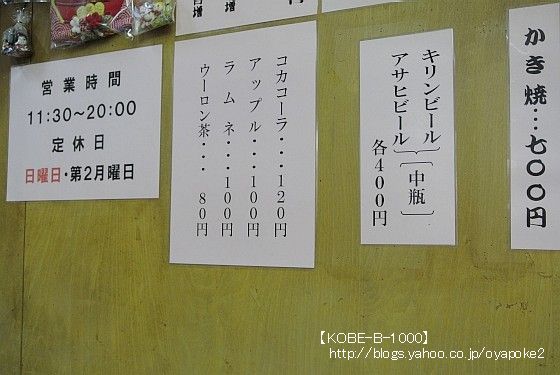 営業時間
11:30～20:00
定休日
日曜日・第2月曜日
コカコーラ・・・120円
アップル・・・・100円
ラムネ・・・・100円
ウーロン茶・・・80円
キリンビール
アサヒビール
[中瓶]
各400円
かき焼…七〇〇円
【KOBE-B-1000】
http://blogs.yahoo.co.jp/oyapoke2